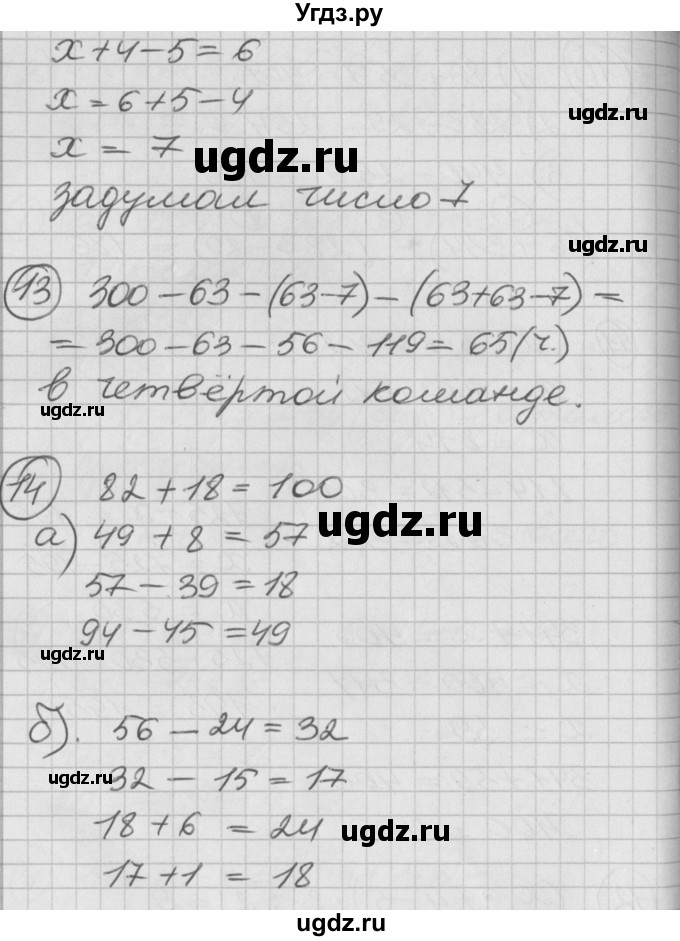 Угдз.ру
x+4-5=6
x=6+5-4
ugdz.ru
x = 7
ugdz.ru
задумал число 7
ugdz.ru
13 300-63-(63-7)-(63+63-7)=
=300-63-56-119=65(ч.)
в четвёртой команде.
ugdz.ru
14 82+18=100
а) 49+8=57
ugdz.ru
57-39=18
94-45=49
ugdz.ru
б). 56-24=32
ugdz.ru
32-15=17
18+6=24
ugdz.ru
17+1=18
ugdz.ru